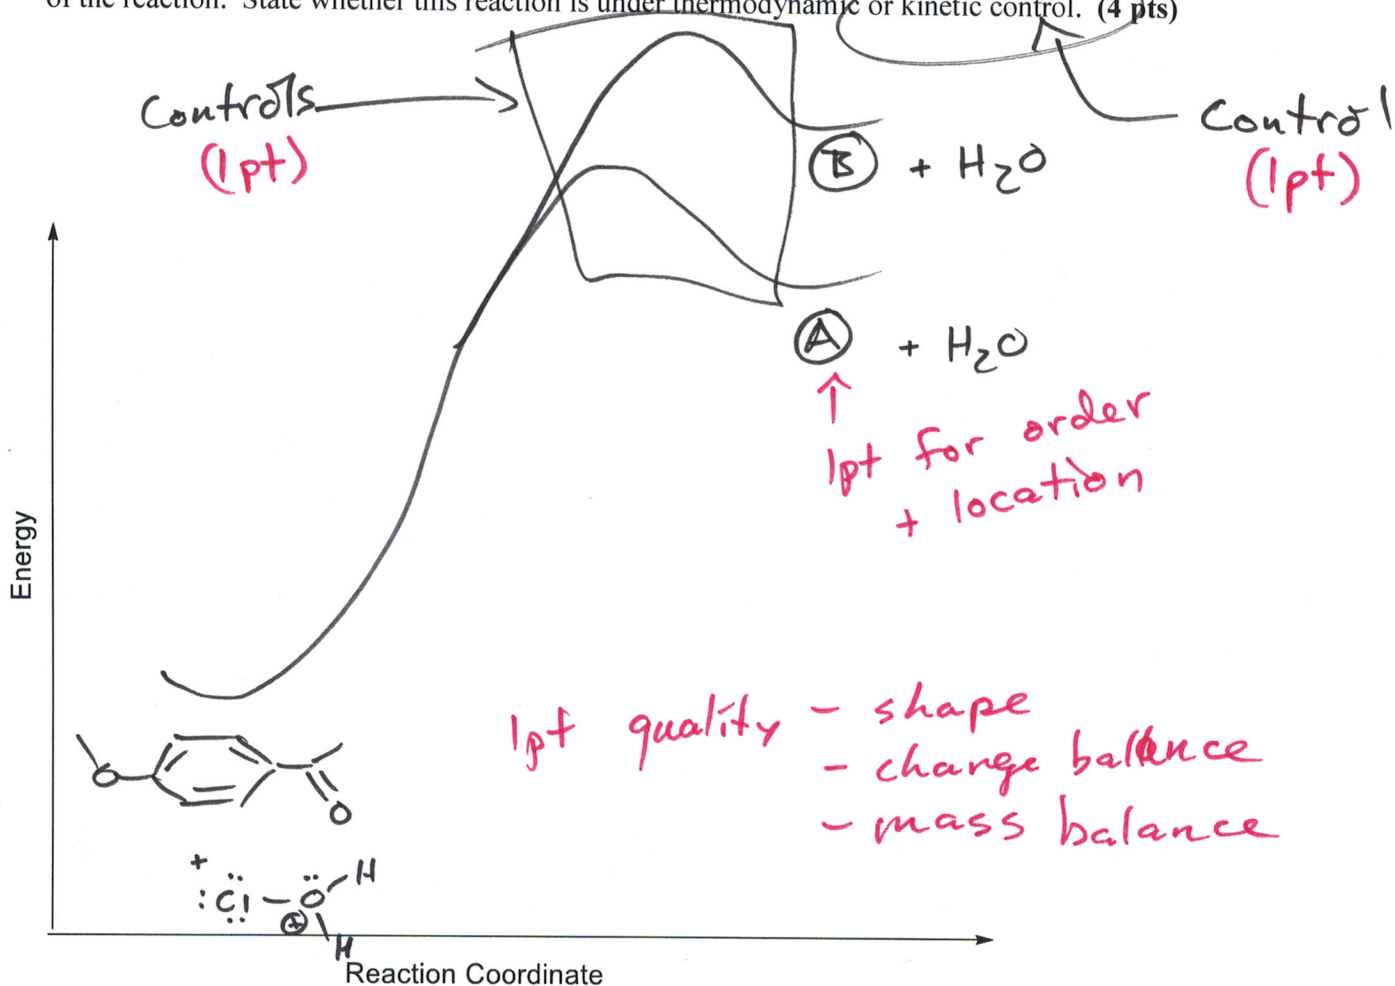 of the reaction. State whether this reaction is under thermodynamic or kinetic control. (4 pts)
Controls
(1pt)
Control
(1pt)
B + H2O
A + H2O
1pt for order
+ location
Energy
1pt quality - shape
- charge balance
- mass balance
O
O
+
:Cl - O - H
+
H
Reaction Coordinate